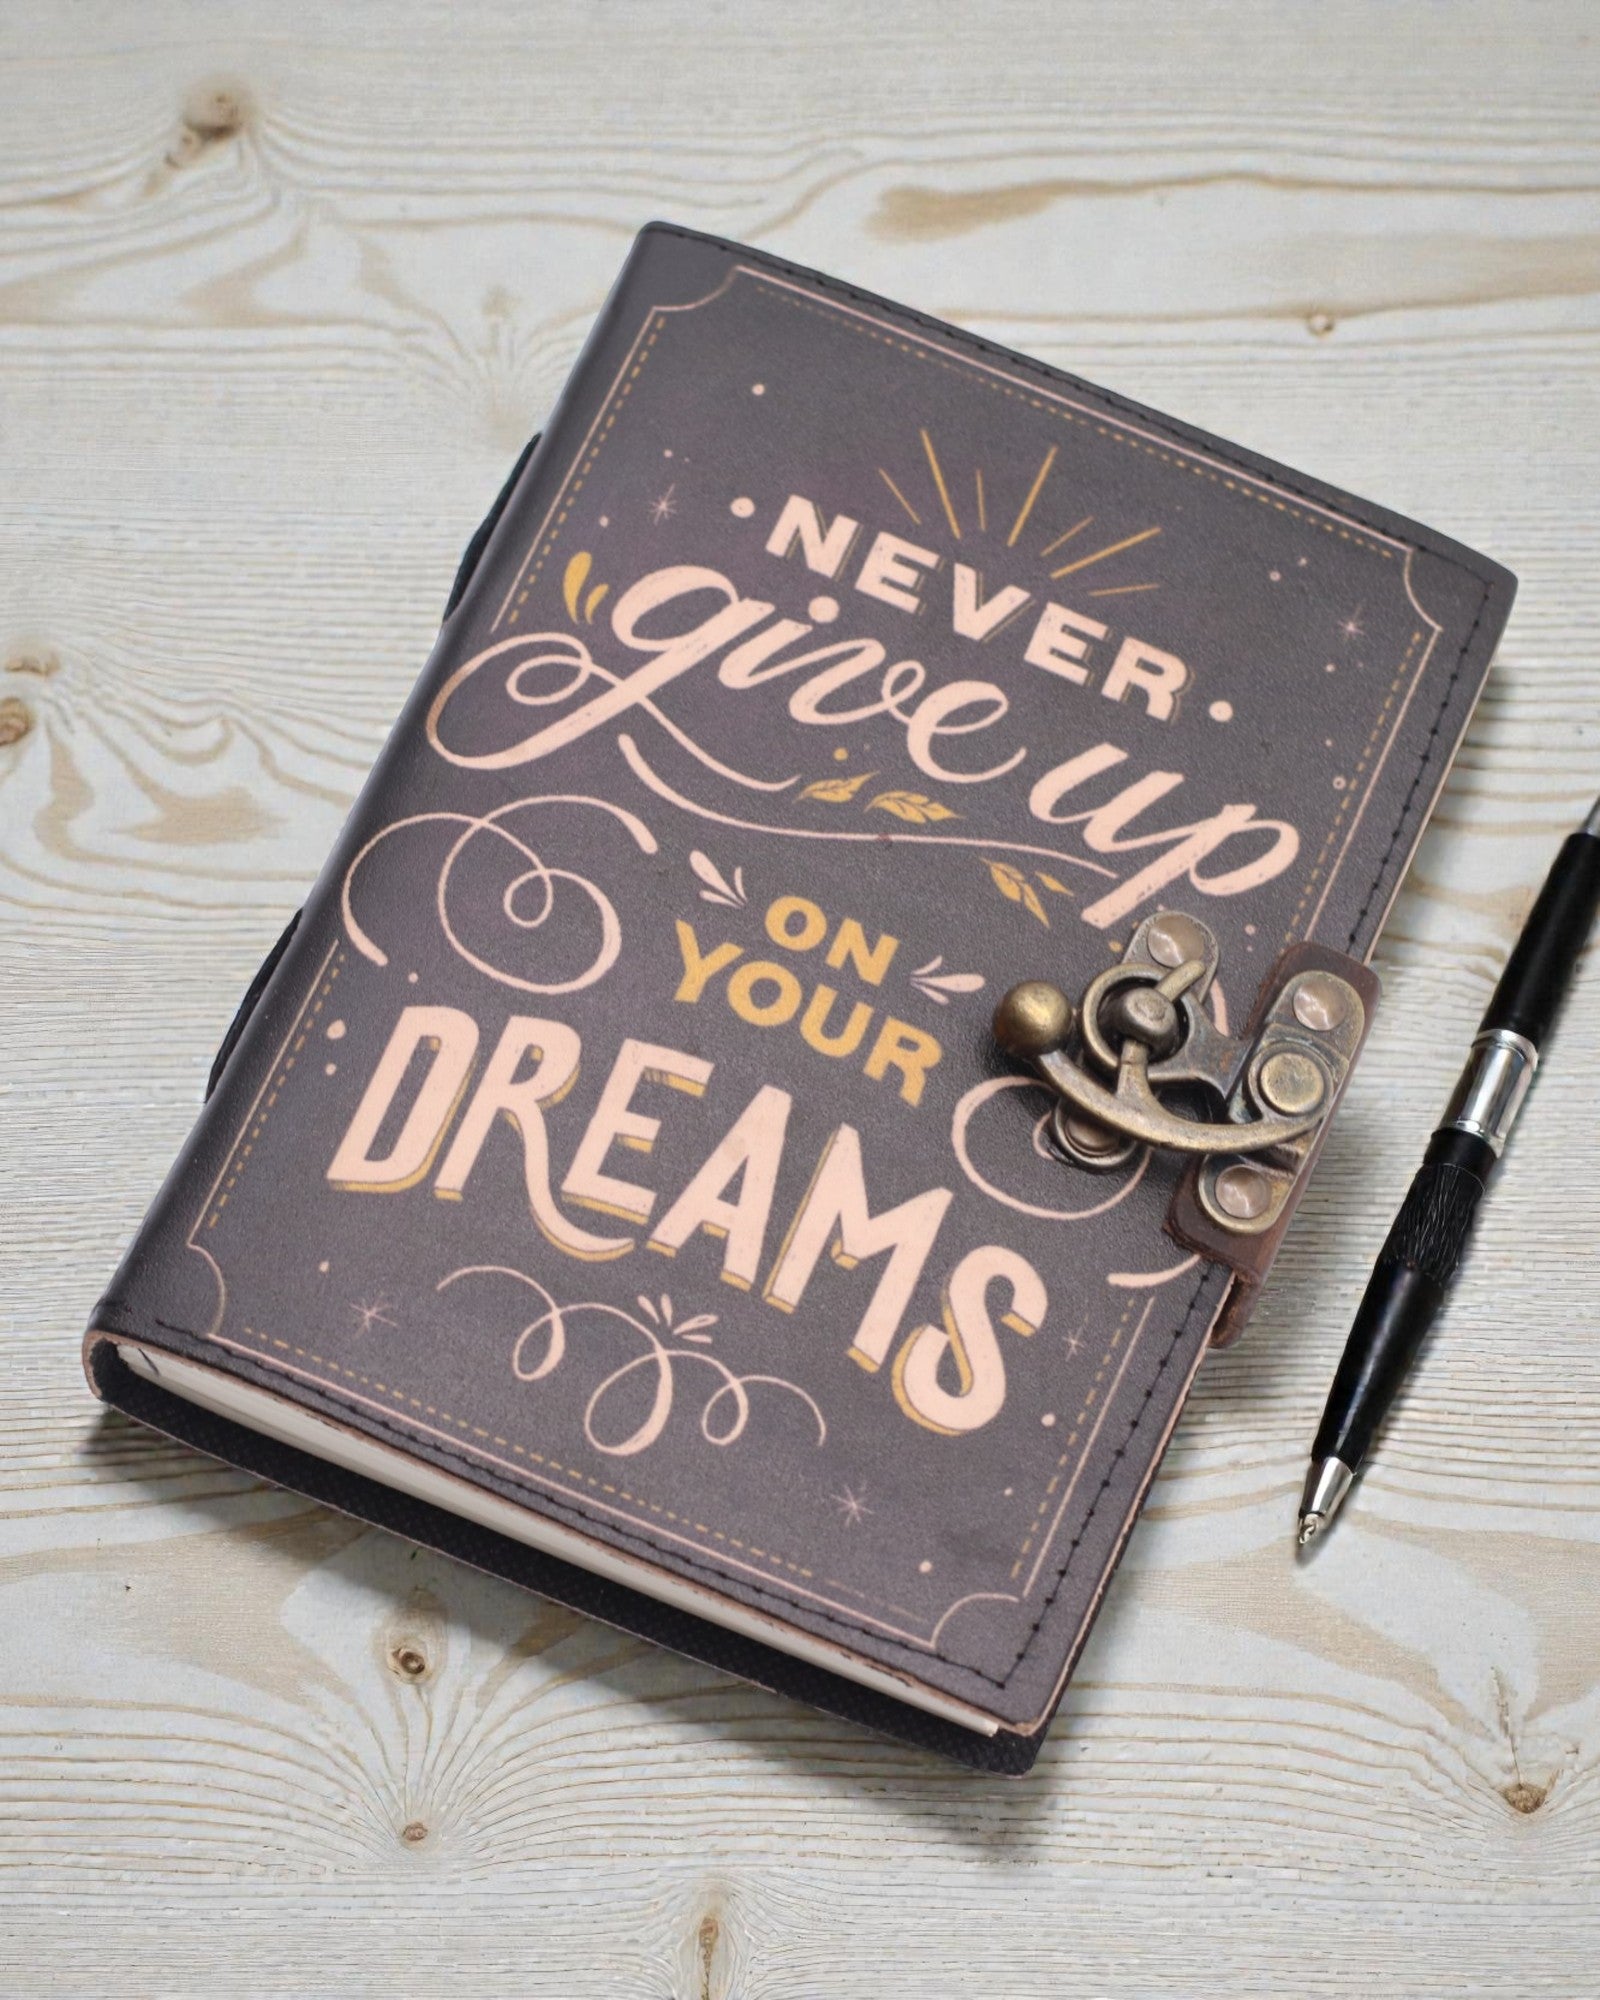 NEVER
give up
ON
YOUR
DREAMS